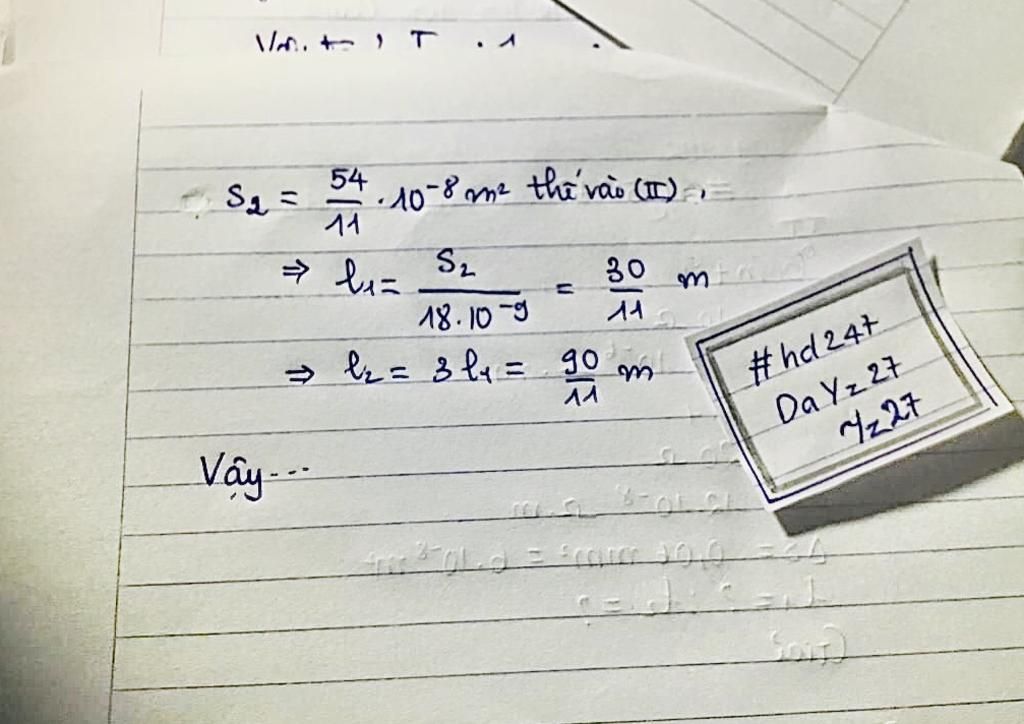 S₂ = 54/11 · 10⁻⁸ m² thế vào (II).
⇒ l₁ = S₂/18.10⁻⁹ = 30/11 m
⇒ l₂ = 3 l₁ = 90/11 m
Vậy---
#hd247
DaYz27
Yz27